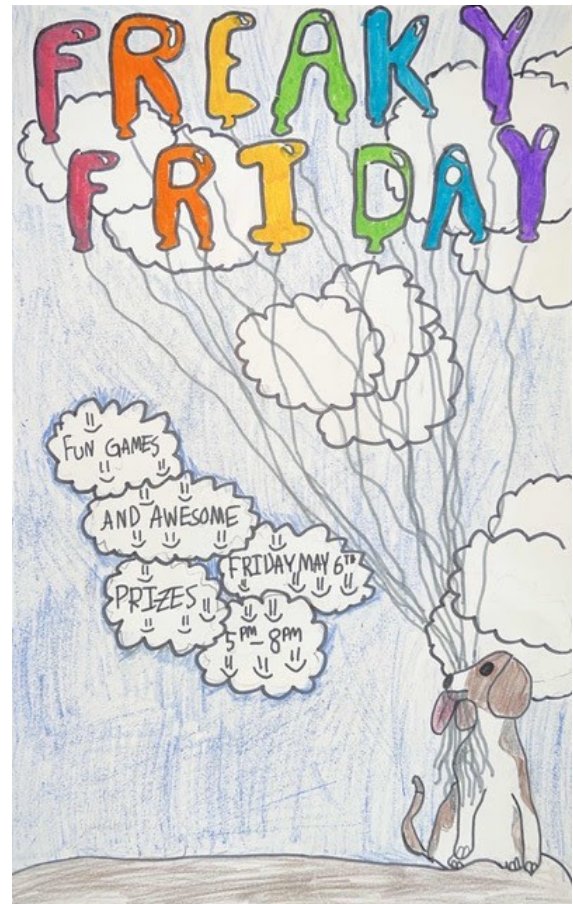 FREAKY
FRIDAY
FUN GAMES
AND AWESOME
PRIZES
FRIDAY MAY 6TH
5PM - 8PM